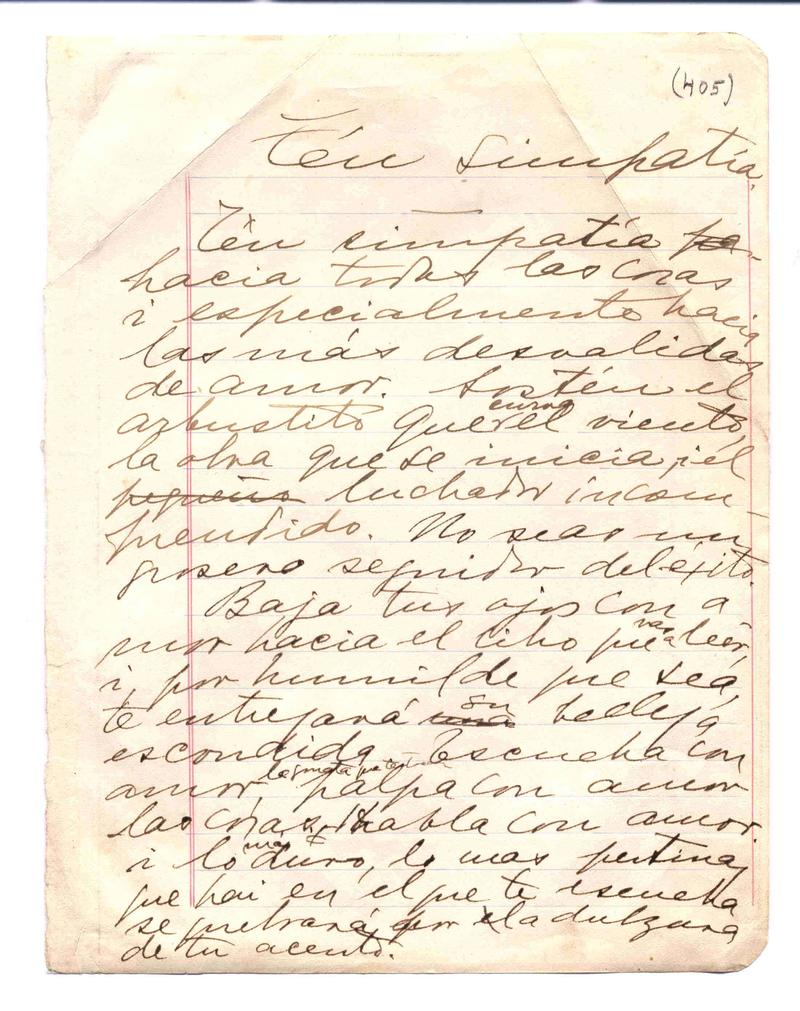 (405)
Tén simpatía.
Tén simpatía pa-
hacia todas las cosas
i especialmente hacia
las más desvalidas
de amor. Sostén el
arbustito que curva el viento,
la obra que se inicia, i el
pequeño luchador incom-
prendido. No seas un
grosero seguidor del éxito.
Baja tus ojos con a
mor hacia el libro que vas a leer,
i, por humilde que sea,
te entregará una su belleza
escondida. Escucha con
amor, palpa con amor
las cosas, i habla con amor.
i lo más duro, lo mas pertinaz
que hai en el que te escucha
se quebrará por la dulzura
de tu acento.